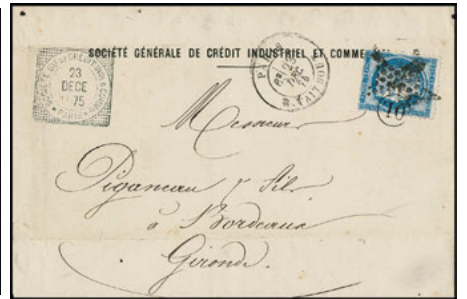 SOCIÉTÉ GÉNÉRALE DE CRÉDIT INDUSTRIEL ET COMME
23
DECE
75
PARIS
PA
23
DEC
75
Messieurs
Piganeau & fils
à Bordeaux
Gironde